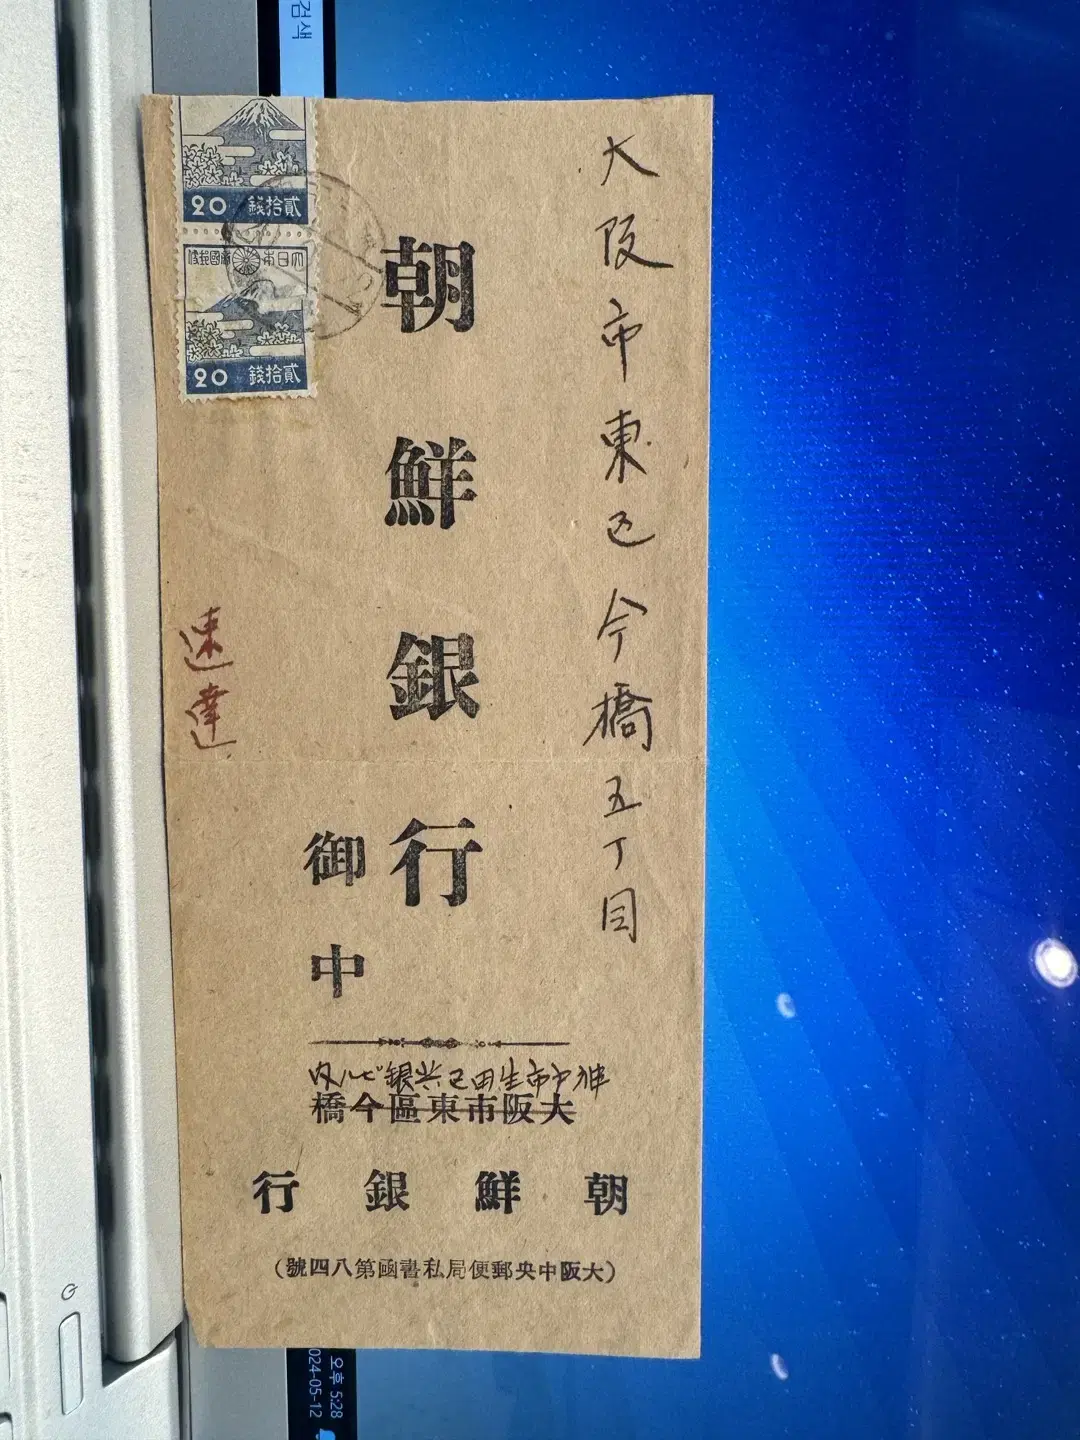 大阪市東区今橋五丁目
朝鮮銀行
御中
速達
20 貳拾錢
大日本帝國郵便
20 貳拾錢
神戸市生田区兴銀ビル内
大阪市東區今橋
朝鮮銀行
(大阪中央郵便局私書函第八四號)
검색
오후 5:28
024-05-12